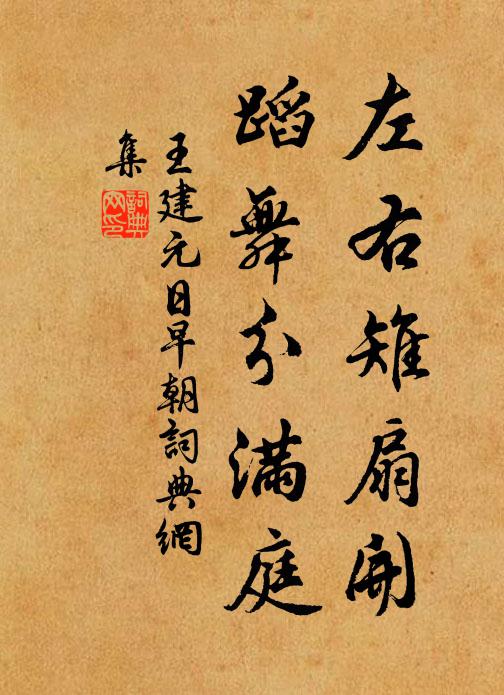 左右雉扇開
蹈舞分滿庭
王建元日早朝詞典網
集
詞典
网印